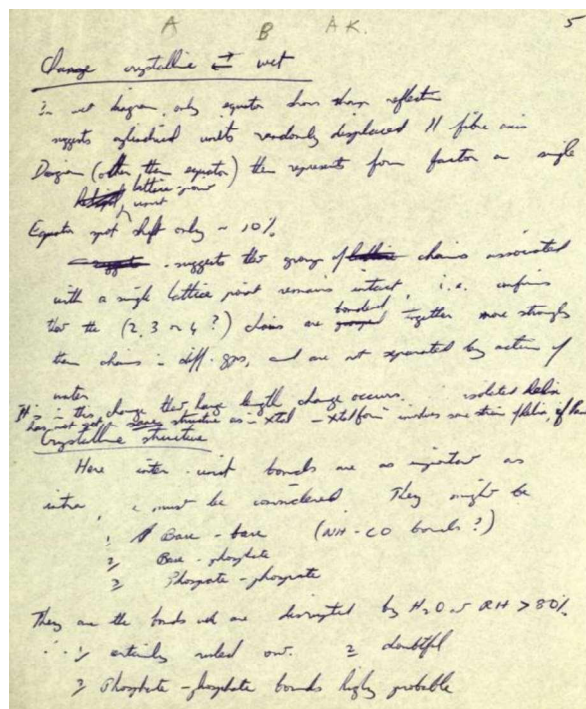 A B A.K. 5
Change crystalline ⇌ wet
In wet diagram, only equator shows sharp reflection
suggests cylindrical units randomly displaced // fibre axis
Diagram (other than equator) then represents form factor on single
lattice-point unit
Equator spot shift only ~ 10%
- suggests that group of chains associated
with a single lattice point remains intact, i.e. confirms
that the (2, 3 or 4 ?) chains are bonded together more strongly
than chains in diff. gps, and are not separated by action of
water
It is in this change that large length change occurs. isolated helix
has not got same structure as in xtal - xtal form involves some strain of helix,
Crystalline structure
Here inter-unit bonds are as important as
intra, & must be considered They might be
1, Base - base (NH-CO bonds?)
2, Base - phosphate
3, Phosphate - phosphate
They are the bonds wh are disrupted by H2O at RH > 80%
∴ 1, certainly ruled out. 2, doubtful
3, Phosphate - phosphate bonds highly probable